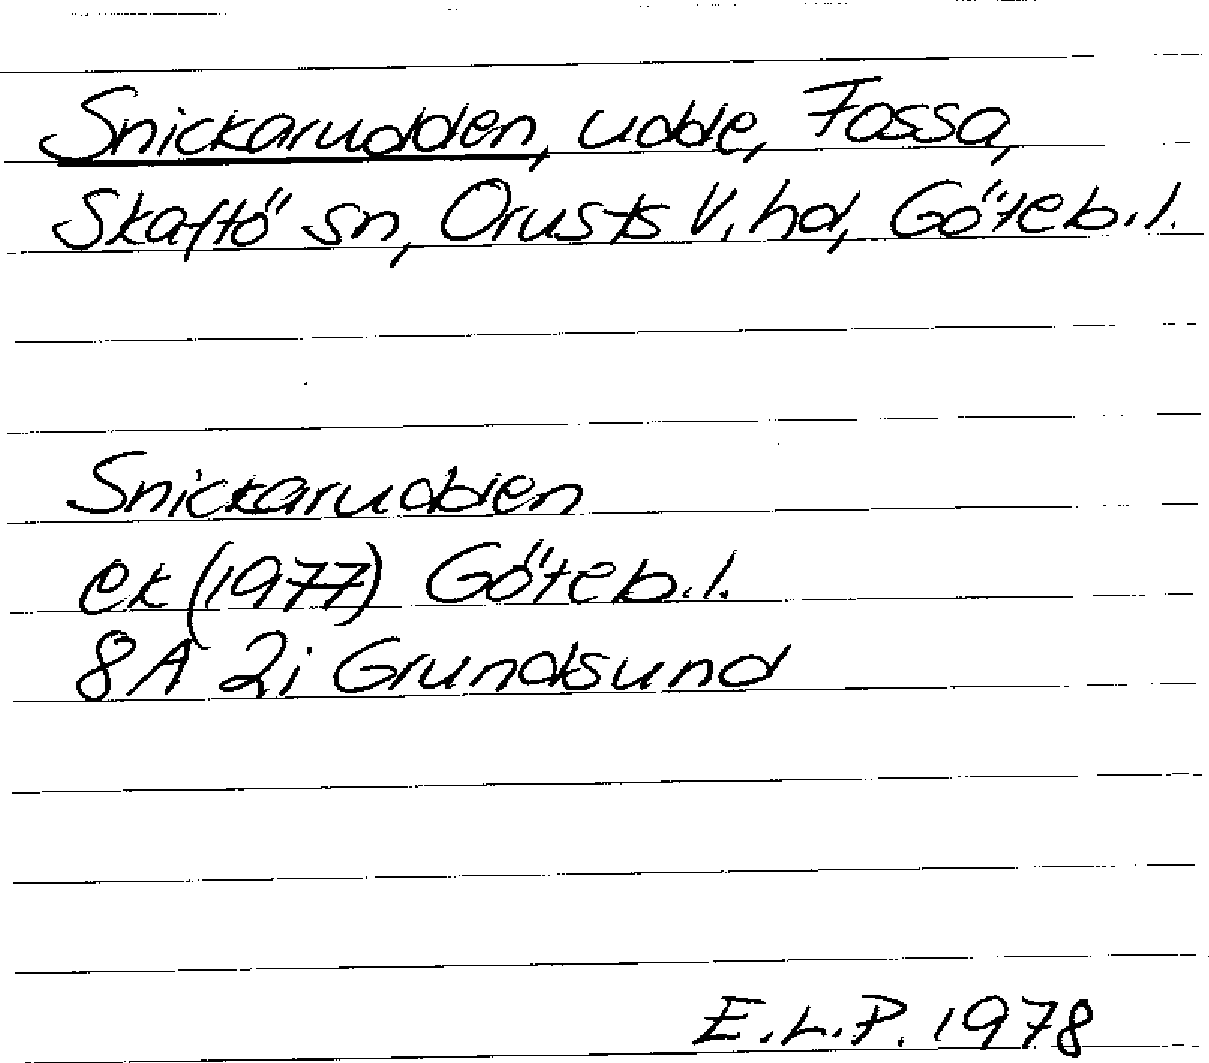 Snickarudden, udde, Fossa,
Skaftö sn, Orusts V. hd, Göteb. l.
Snickarudden
ek (1977) Göteb. l.
8A 2i Grundsund
E.L.P. 1978